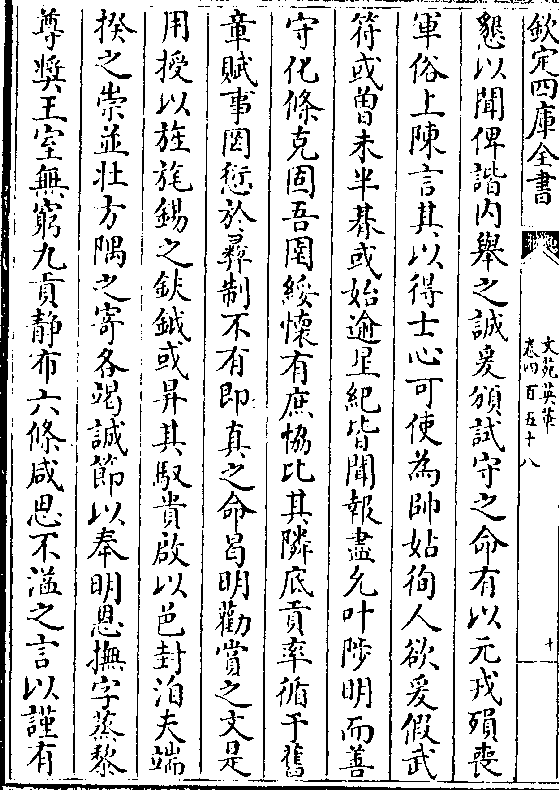 欽定四庫全書
文苑英華
卷四百五十八
十
懇以聞俾諧内舉之誠爰頒試守之命有以元戎殞喪
軍俗上陳言其以得士心可使為帥姑徇人欲爰假武
符或曽未半朞或始逾星紀皆聞報盡允叶陟明而善
守化條克固吾圉綏懷有庶恊比其隣底貢率循于舊
章賦事罔愆於彞制不有即真之命曷明勸賞之文是
用授以旌旄錫之鈇鉞或昇其馭貴啟以邑封洎夫端
揆之崇並壯方隅之寄各竭誠節以奉明恩撫字蒸黎
尊奬王室無窮九貢静布六條咸思不溢之言以謹有